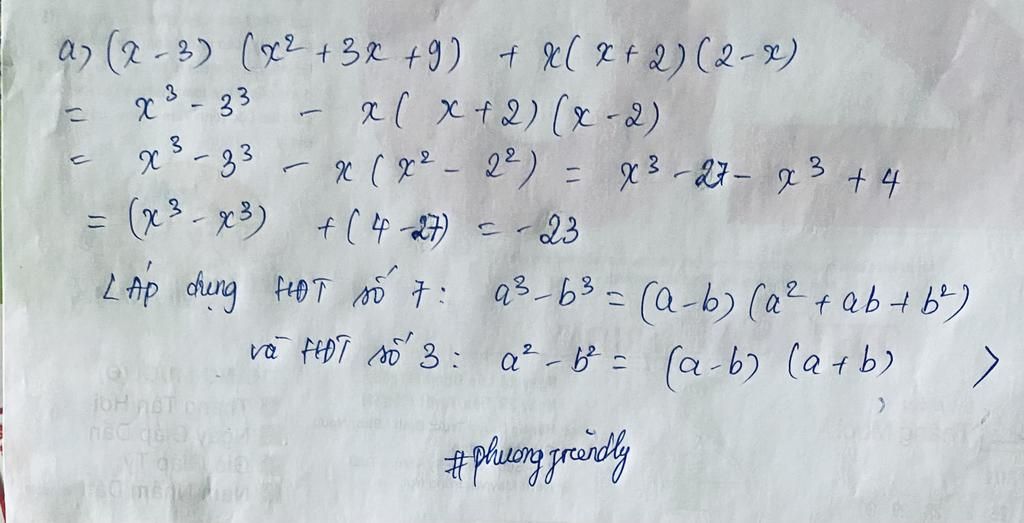 a) (x - 3) (x² + 3x + 9) + x( x + 2) (2 - x)
= x³ - 3³ - x( x + 2) (x - 2)
= x³ - 3³ - x (x² - 2²) = x³ - 27 - x³ + 4
= (x³ - x³) + (4 - 27) = - 23
< Áp dụng HĐT số 7 : a³ - b³ = (a - b) (a² + ab + b²)
và HĐT số 3 : a² - b² = (a - b) (a + b) >